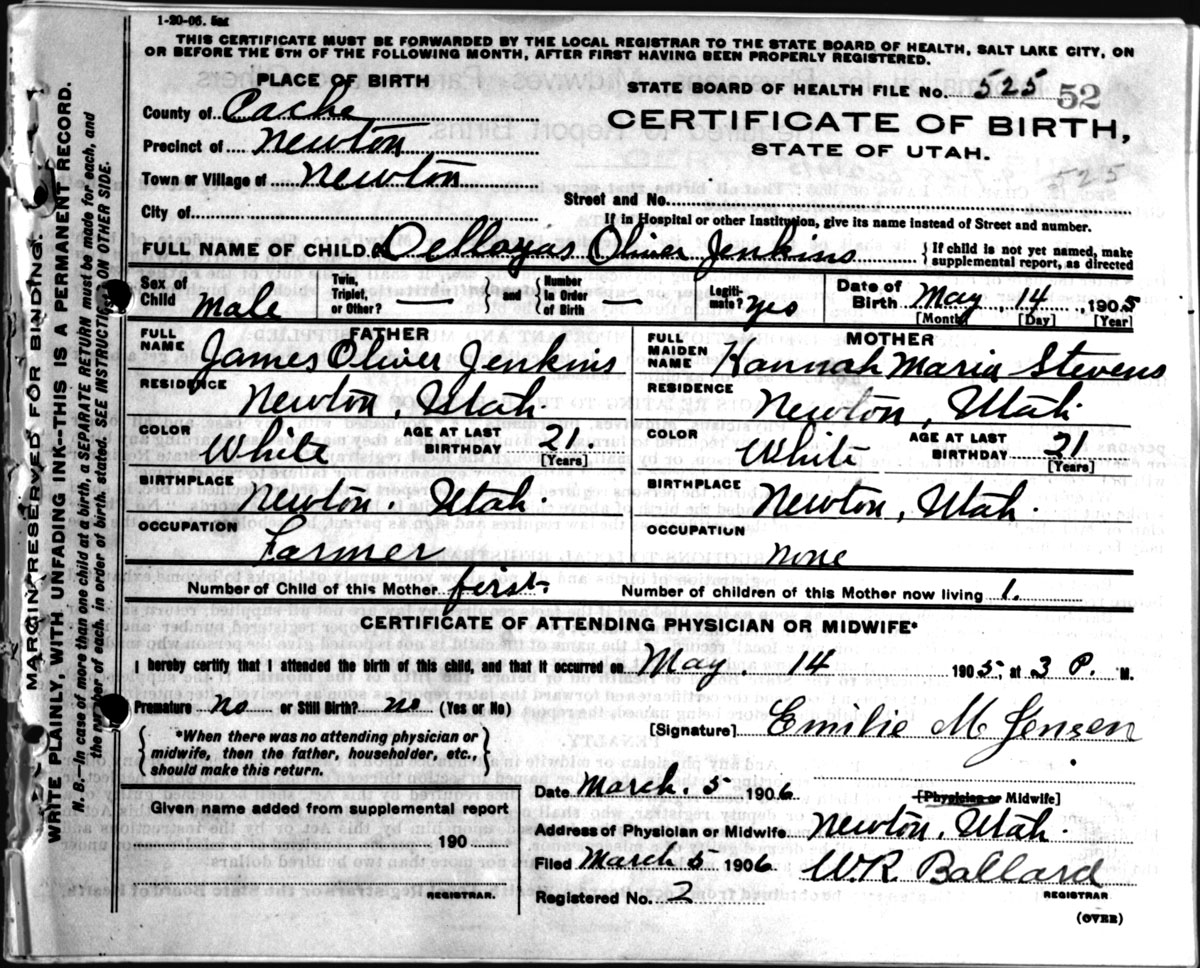 1-20-06. 5M
THIS CERTIFICATE MUST BE FORWARDED BY THE LOCAL REGISTRAR TO THE STATE BOARD OF HEALTH, SALT LAKE CITY, ON
OR BEFORE THE 5TH OF THE FOLLOWING MONTH, AFTER FIRST HAVING BEEN PROPERLY REGISTERED.
PLACE OF BIRTH
County of Cache
Precinct of Newton
Town or Village of Newton
City of
STATE BOARD OF HEALTH FILE No. 525 52
CERTIFICATE OF BIRTH,
STATE OF UTAH.
525
Street and No.
If in Hospital or other Institution, give its name instead of Street and number.
FULL NAME OF CHILD Oliver Jenkins
{If child is not yet named, make
supplemental report, as directed
Sex of Child Male
Twin, Triplet, or Other? — } and { Number in Order of Birth —
Legitimate? yes
Date of Birth May, 14, 1905
[Month] [Day] [Year]
FATHER
FULL NAME James Oliver Jenkins
RESIDENCE Newton, Utah.
COLOR White AGE AT LAST BIRTHDAY 21. [Years]
BIRTHPLACE Newton. Utah
OCCUPATION Farmer
MOTHER
FULL MAIDEN NAME Hannah Maria Stevens
RESIDENCE Newton, Utah.
COLOR White AGE AT LAST BIRTHDAY 21 [Years]
BIRTHPLACE Newton, Utah.
OCCUPATION none
Number of Child of this Mother first. Number of children of this Mother now living 1.
CERTIFICATE OF ATTENDING PHYSICIAN OR MIDWIFE*
I hereby certify that I attended the birth of this child, and that it occurred on May 14 1905, at 3 P. M.
Premature no or Still Birth? no (Yes or No)
{*When there was no attending physician or
midwife, then the father, householder, etc.,
should make this return.}
[Signature] Emilie M Jensen
[Physician or Midwife]
Given name added from supplemental report
190
REGISTRAR.
Date March. 5 1906
Address of Physician or Midwife Newton, Utah.
Filed March 5 1906 W R Ballard
Registered No. 2 REGISTRAR
(OVER)
MARGIN RESERVED FOR BINDING.
WRITE PLAINLY, WITH UNFADING INK--THIS IS A PERMANENT RECORD.
N. B.—In case of more than one child at a birth, a SEPARATE RETURN must be made for each, and
the number of each, in order of birth, stated. SEE INSTRUCTION ON OTHER SIDE.